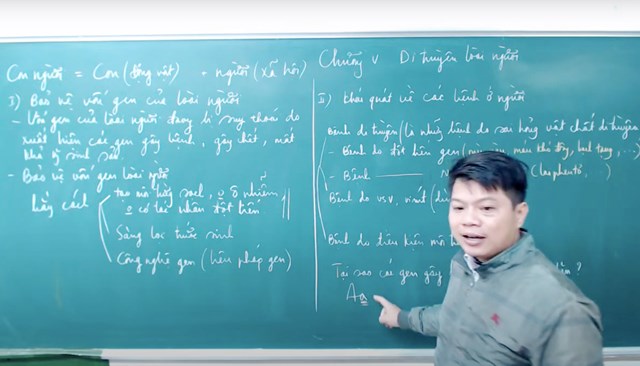 Con người = Con (động vật) + người (xã hội)
Chương V Di truyền loài người
I) Bảo vệ vốn gen của loài người
- Vốn gen của loài người đang bị suy thoái do
xuất hiện các gen gây bệnh, gây chết, mất
khả sinh sản
- Bảo vệ vốn gen loài người
bằng cách
tạo môi trường sạch, ô nhiễm
có tác nhân đột biến
Sàng lọc trước sinh
Công nghệ gen (liệu pháp gen)
II) Khái quát về các bệnh ở người
Bệnh di truyền (là những bệnh do sai hỏng vật chất di truyền
- Bệnh do đột biến gen (máu khó đông, bạch tạng, ...)
- Bệnh
Bệnh do vsv, virút
Bệnh do điều kiện môi
Tại sao các gen gây ?
Aa